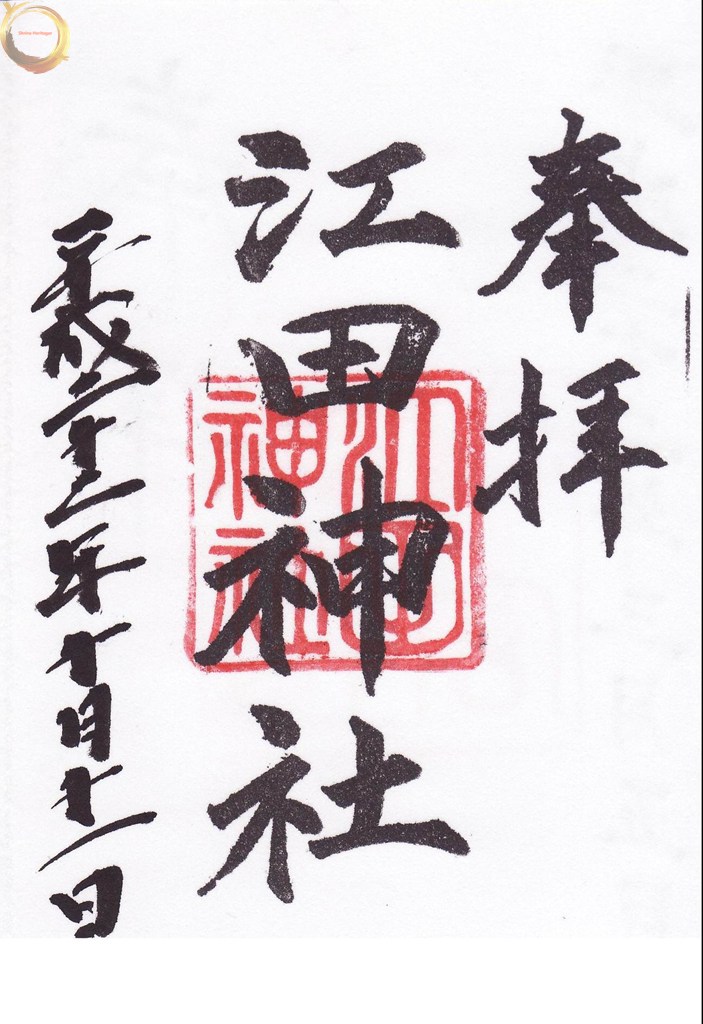 奉拝
江田神社
江田
神社
平成二十二年十月十一日